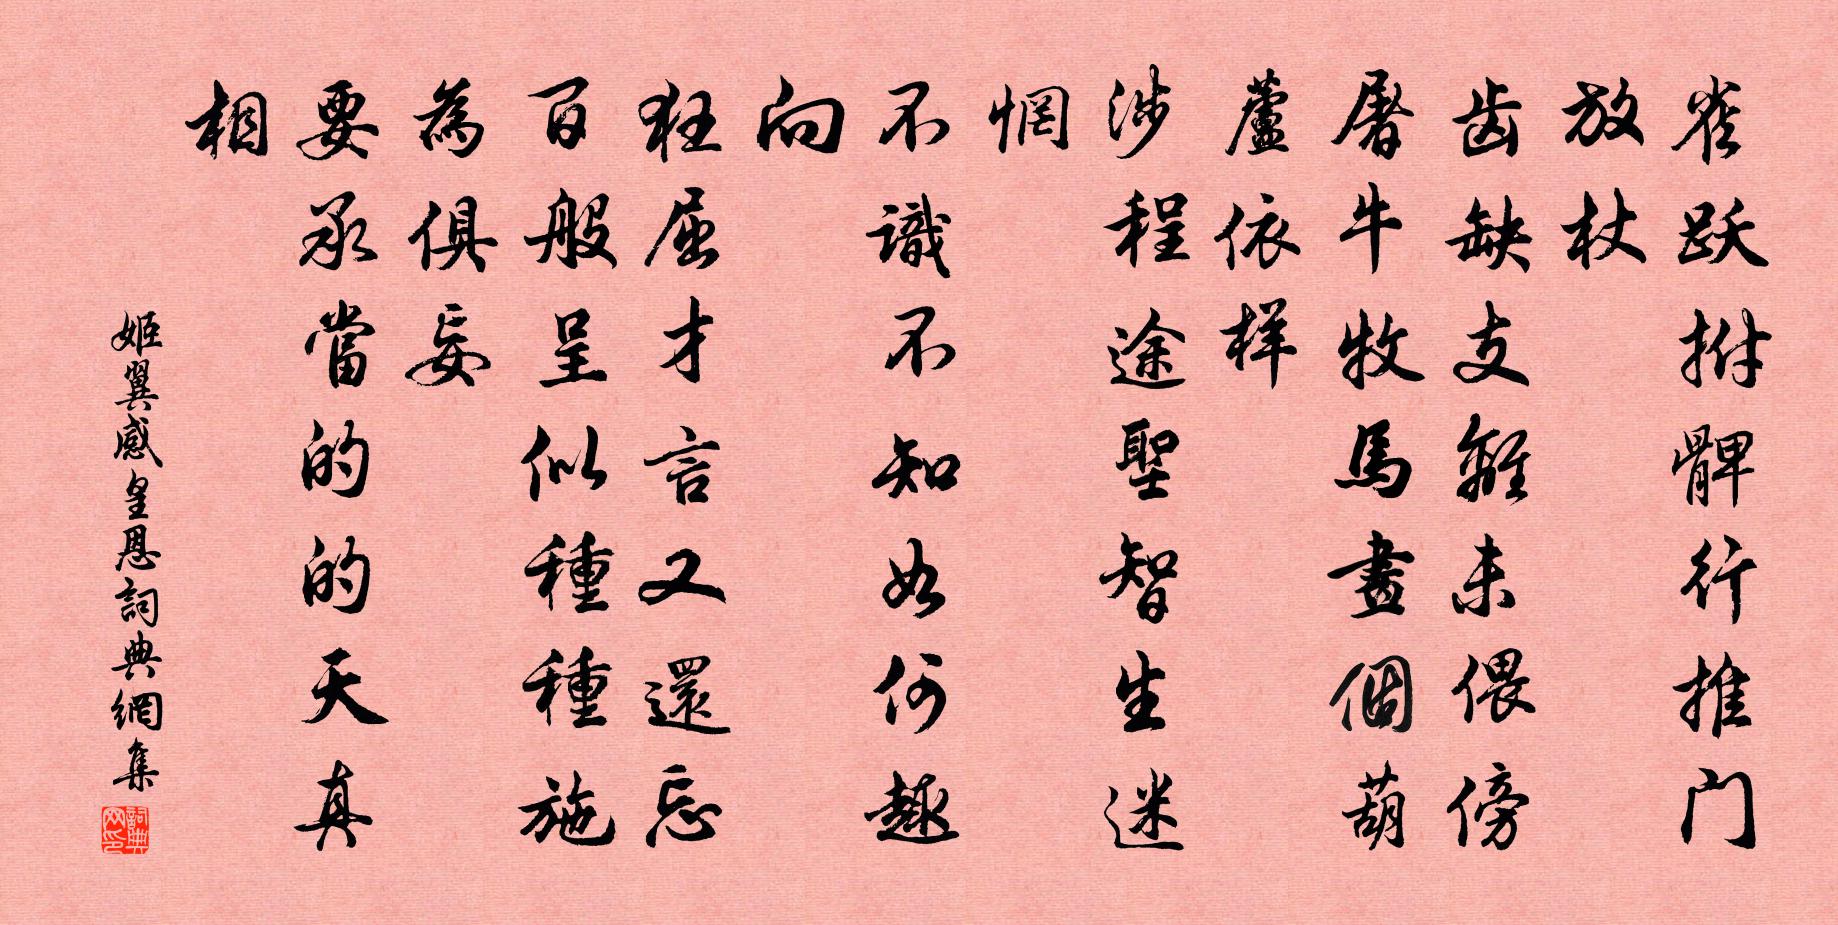 雀跃拊髀行推门
放杖
齿缺支離未偎傍
屠牛牧馬畫個葫
蘆依样
涉程途聖智生迷
惘
不識不知如何趣
向
狂屈才言又還忘
百般呈似種種施
為俱妄
要承當的的天真
相
姬翼感皇恩詞典網集
詞典網印